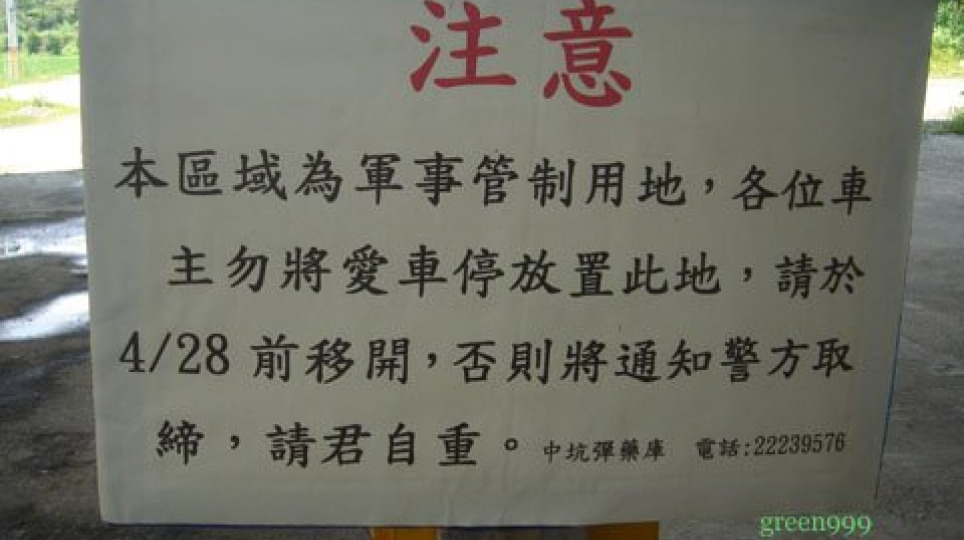 注意
本區域為軍事管制用地，各位車
主勿將愛車停放置此地，請於
4/28前移開，否則將通知警方取
締，請君自重。中坑彈藥庫 電話:22239576
green999